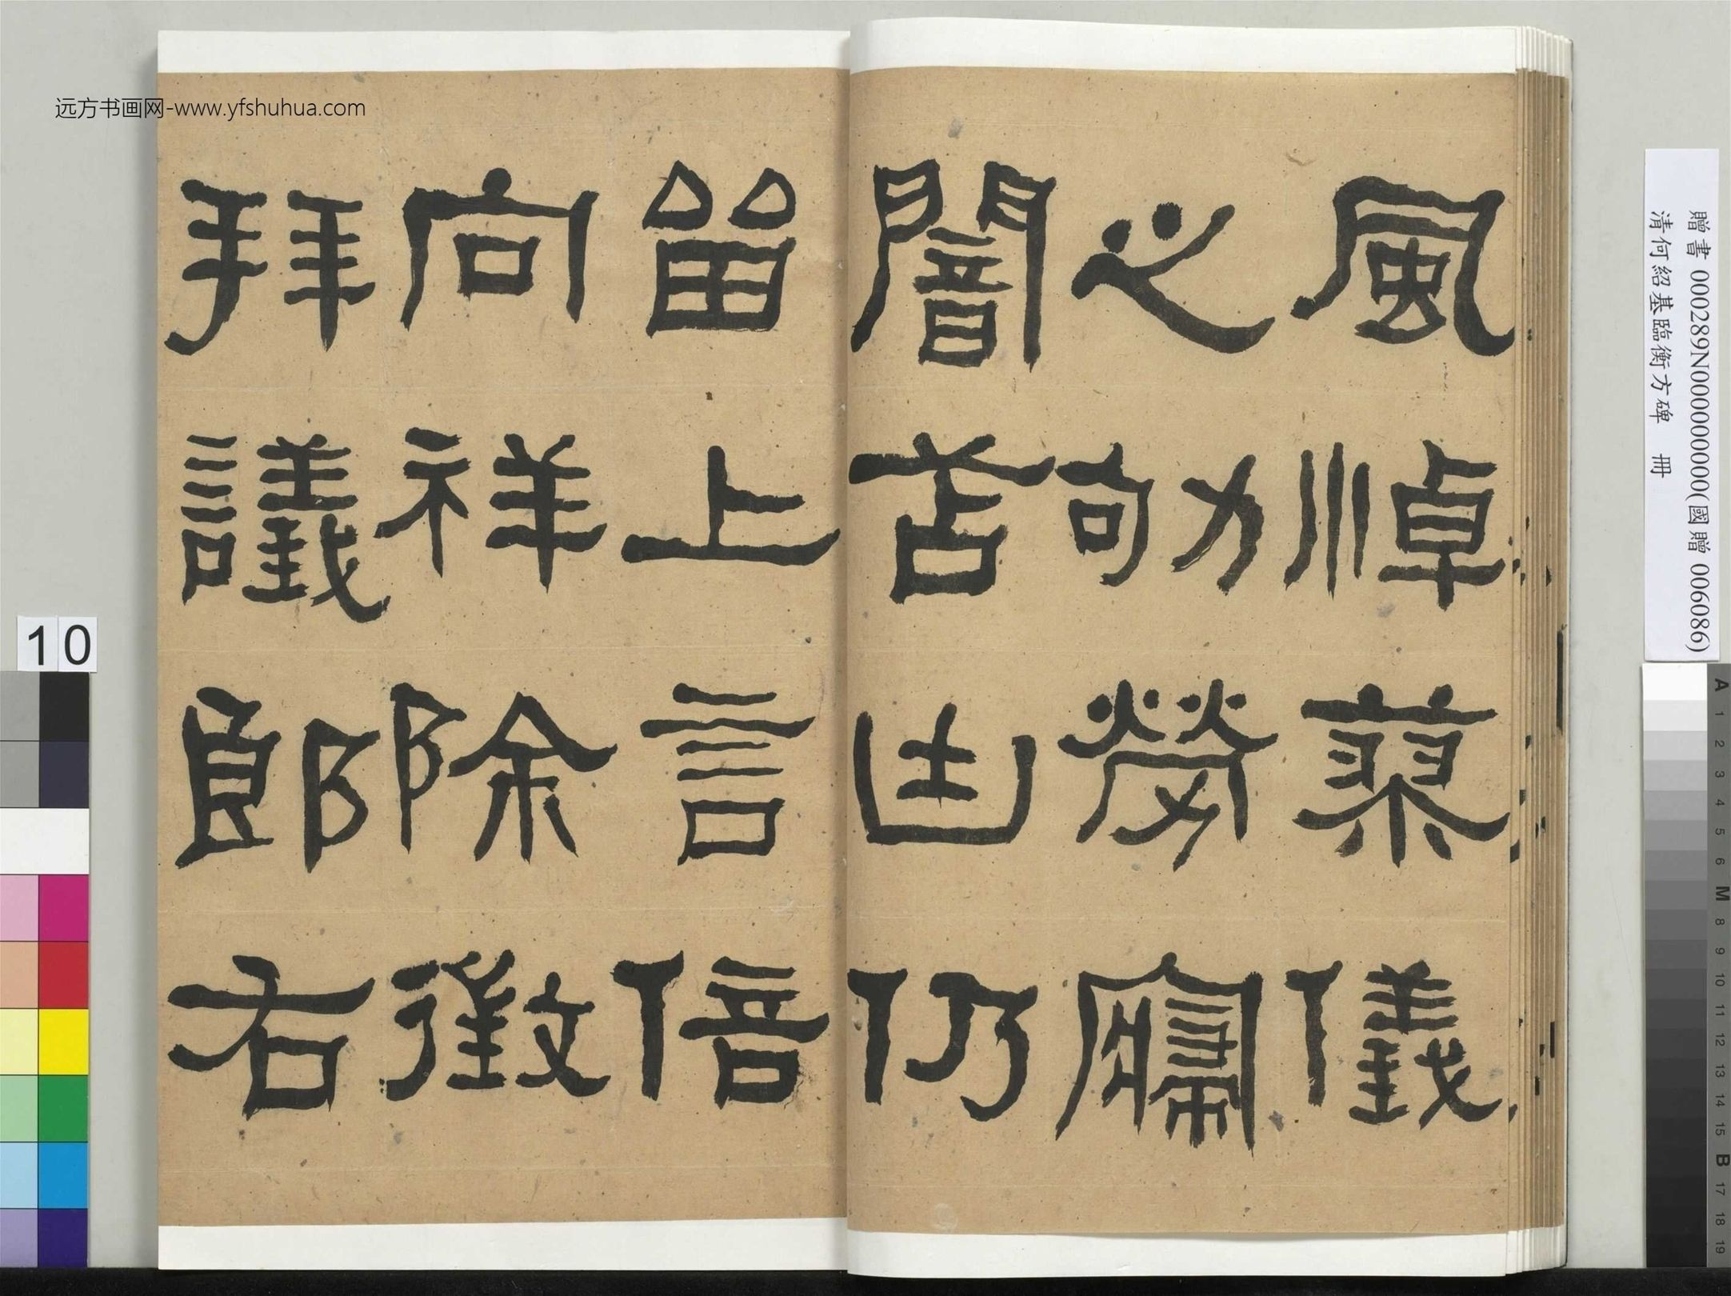 远方书画网-www.yfshuhua.com
風悼蓼儀
之劬勞寢
闇苫凷仍
畱上言倍
向祥除徵
拜議郎右
贈書 000289N000000000(國贈 006086)
清何紹基臨衡方碑 冊
10
A 1 2 3 4 5 6 M 8 9 10 11 12 13 14 15 B 17 18 19